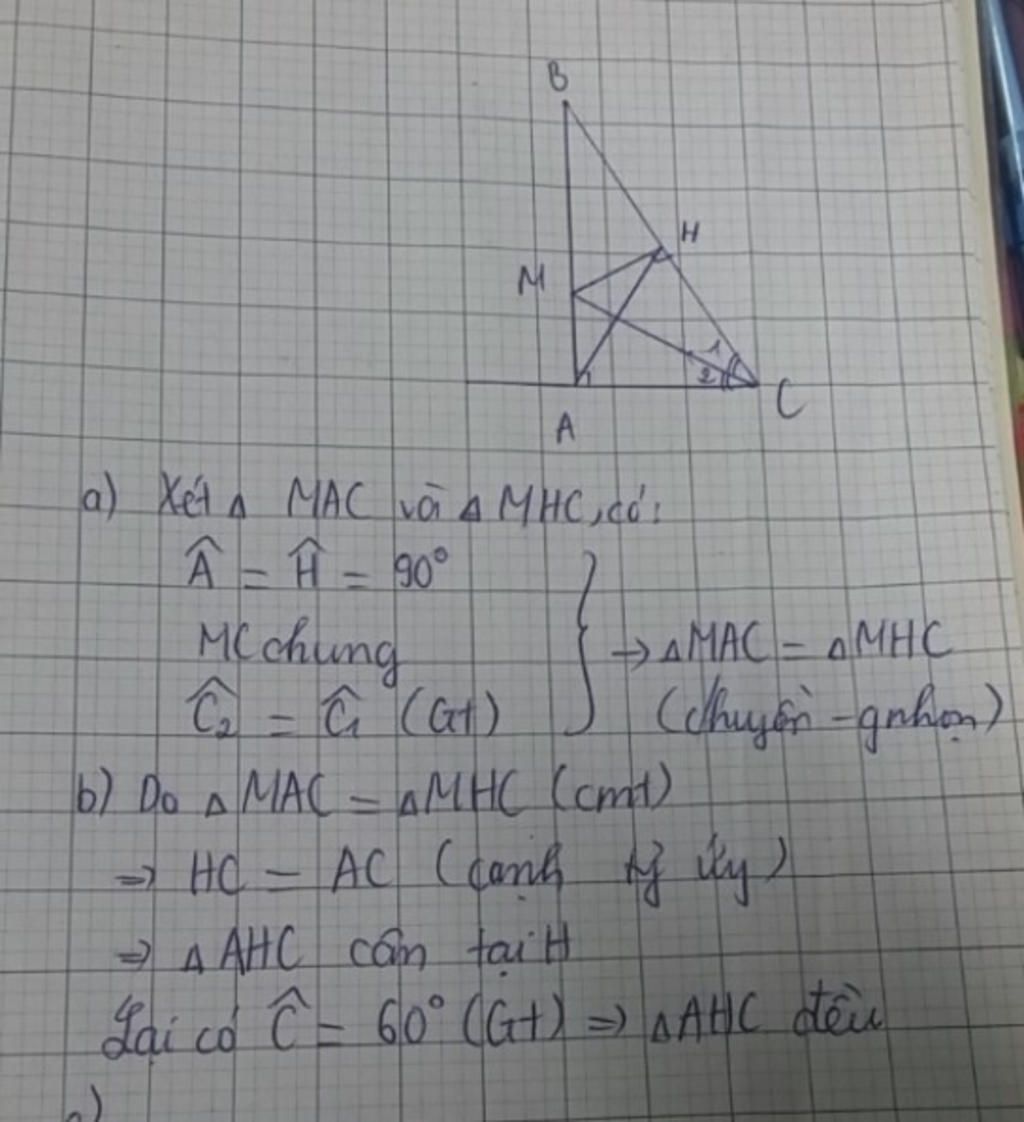 B
H
M
1
2
A
C
a) Xét Δ MAC và Δ MHC, có:
Â = Ĥ = 90°
MC chung
→ ΔMAC = ΔMHC
Ĉ₂ = Ĉ₁ (Gt)
(chuyền - gnhọn)
b) Do ΔMAC = ΔMHC (cmt)
⇒ HC = AC (cạnh)
⇒ ΔAHC cân tại H
Lại có Ĉ = 60° (Gt) ⇒ ΔAHC đều